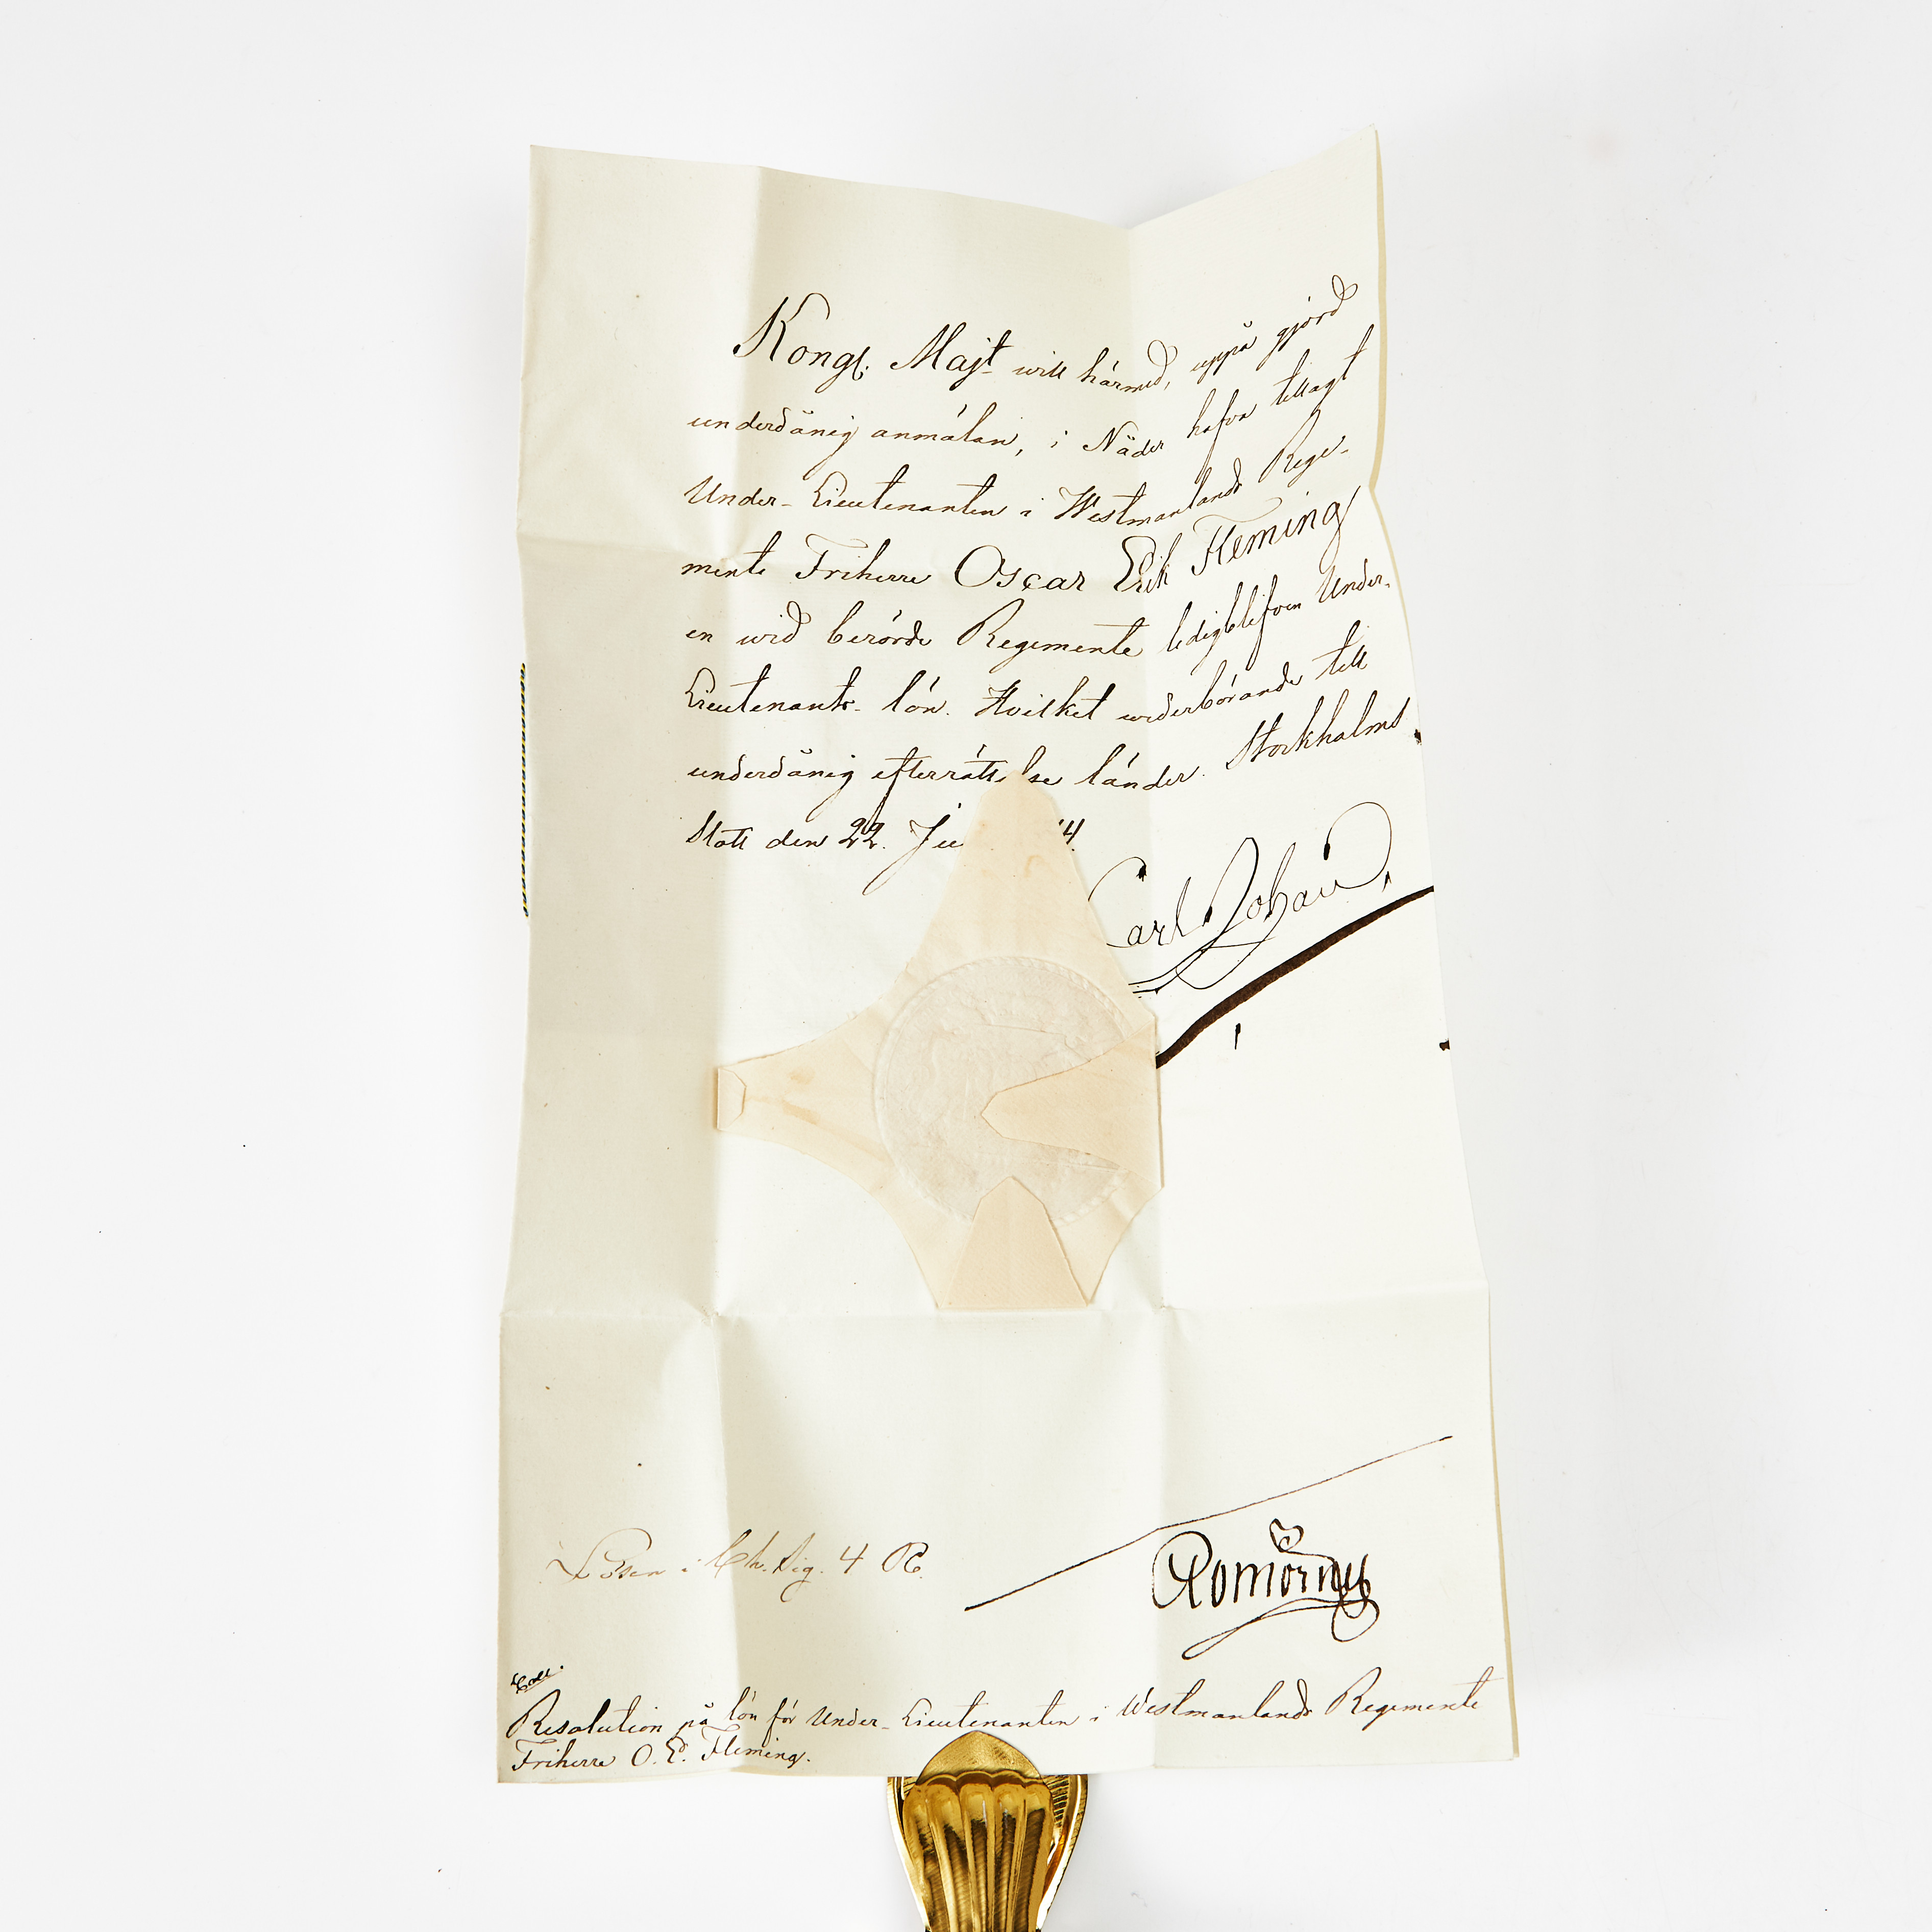 Kongl. Majt will härmed, uppå gjord
underdånig anmälan, i Nåder hafva tillagt
Under-Lieutenanten i Westmanlands Rege-
mente Friherre Oscar Erik Fleming
en wid berörde Regemente ledigblifven Under-
Lieutenants-lön. Hvilket wederbörande till
underdånig efterrättelse länder. Stockholms
Slott den 22. Ju 4.
Carl Johan
Lösen i Ch. Sig. 4 R.
Resolution på lön för Under-Lieutenanten i Westmanlands Regemente
Friherre O. E. Fleming.